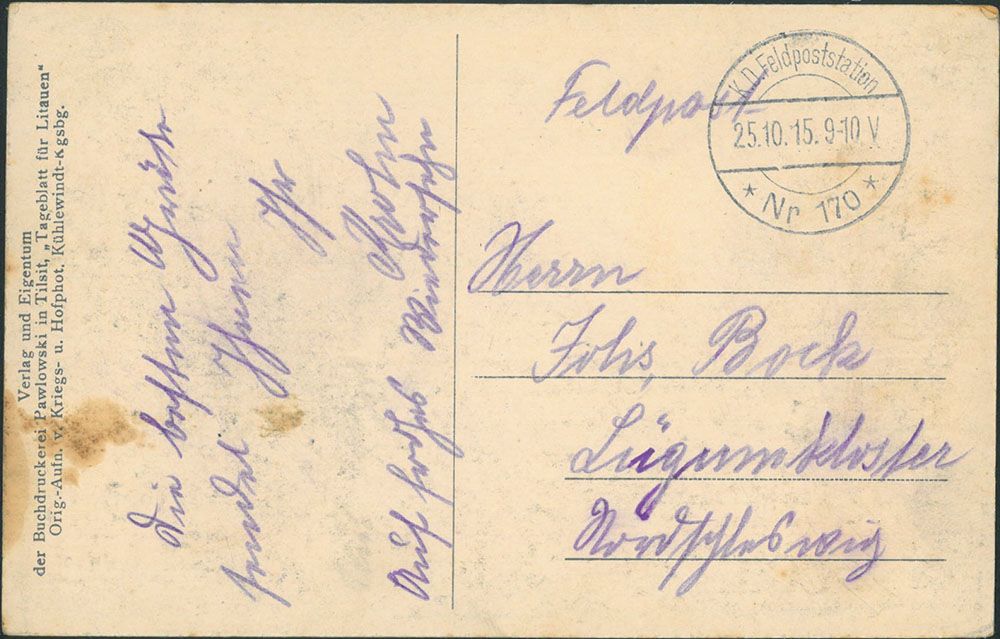 Verlag und Eigentum
der Buchdruckerei Pawlowski in Tilsit, „Tageblatt für Litauen“
Orig.-Aufn. v. Kriegs- u. Hofphot. Kühlewindt-Kgsbg.
Die besten Grüße
sendet Ihnen
Ihr
Auf frohes Wiedersehn
Feldpost
K.D. Feldpoststation
25.10.15. 9-10 V
* Nr 170 *
Herrn
Bock
Lügumkloster
Nordschleswig